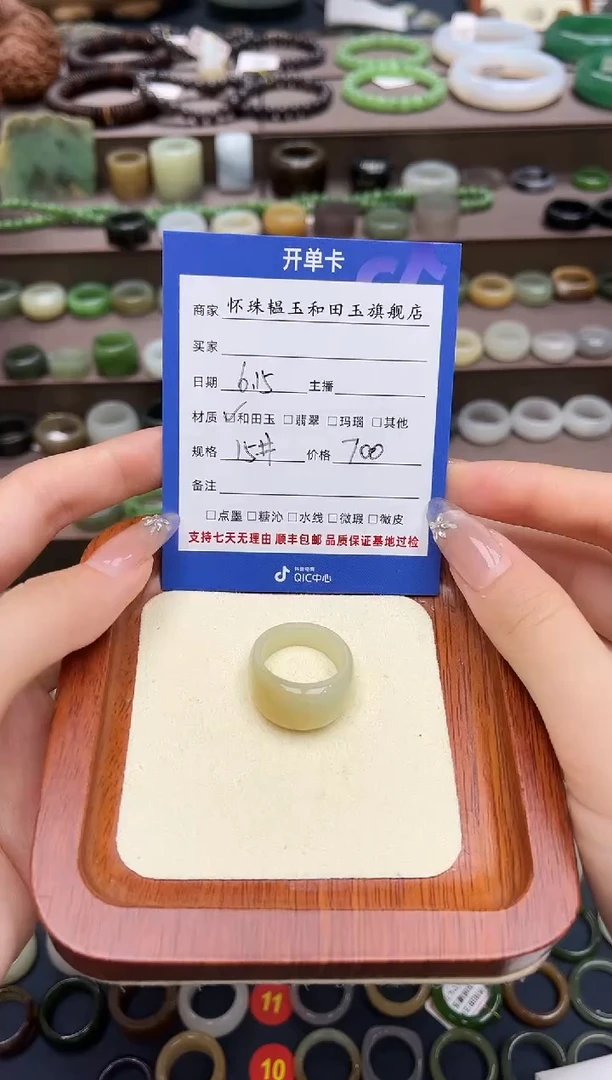 开单卡
商家 怀珠韫玉和田玉旗舰店
买家
日期 6.15 主播
材质 ☑和田玉 □翡翠 □玛瑙 □其他
规格 15# 价格 700
备注
□点墨 □糖沁 □水线 □微瑕 □微皮
支持七天无理由 顺丰包邮 品质保证基地过检
抖音电商
QIC中心
11
10